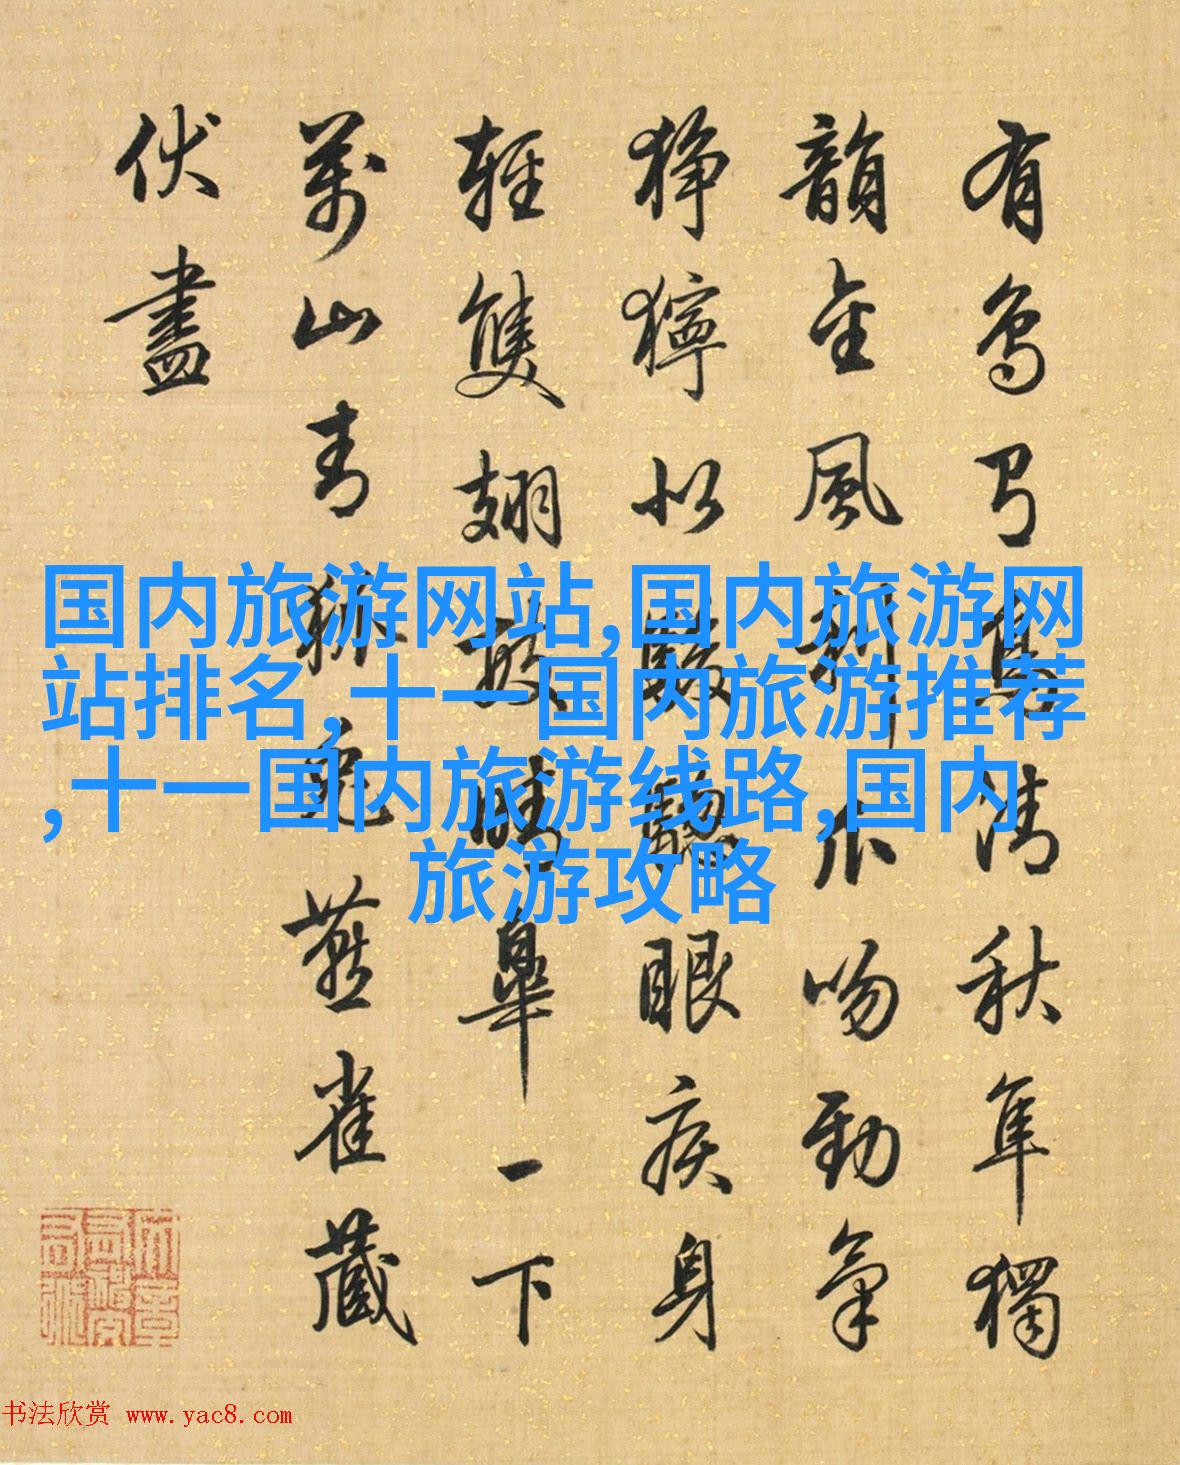 有鳥乃清秋隼獨
韻金風爪吻勁氣
猙獰似眼疾身
輕雙翅皋一下
萬山青狐兔燕雀藏
伏盡
国内旅游网站,国内旅游网
站排名,十一国内旅游推荐
,十一国内旅游线路,国内
旅游攻略
书法欣赏 www.yac8.com